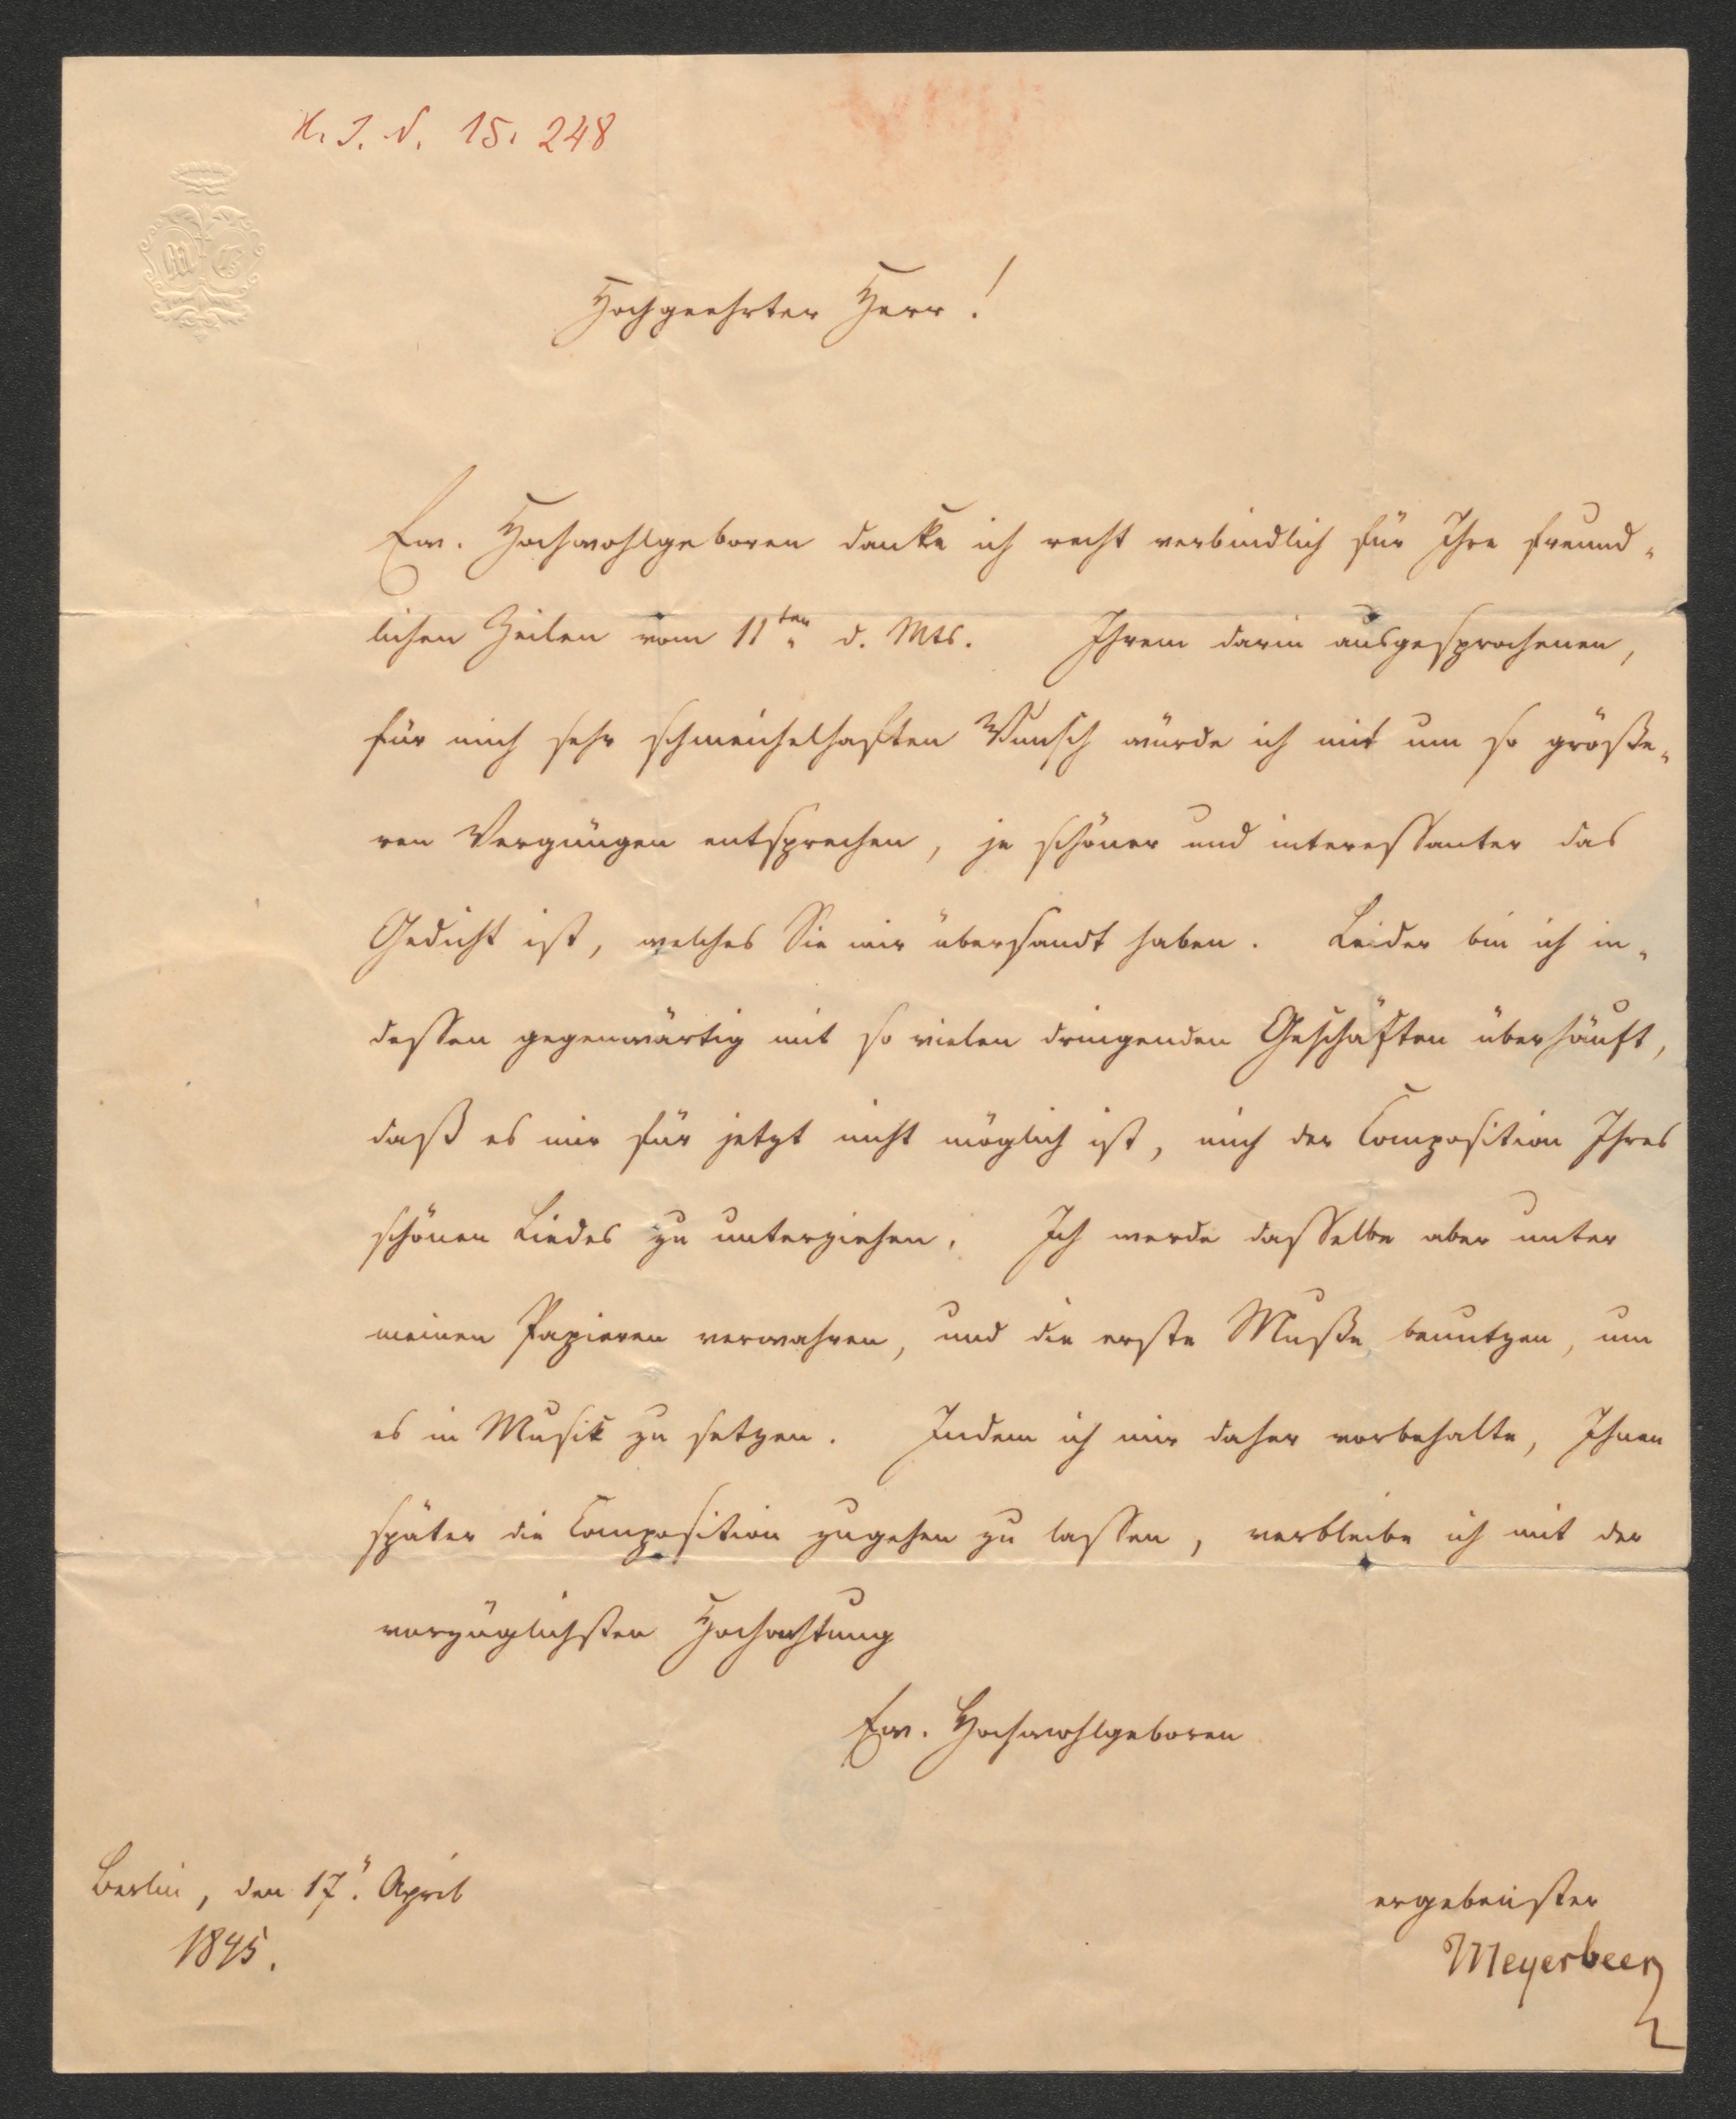 H. I. N. 15.248
Hochgeehrter Herr!
Ew. Hochwohlgeboren danke ich recht verbindlich für Ihre freund-
lichen Zeilen vom 11ten d. Mts. Ihrem darin ausgesprochenen,
für mich sehr schmeichelhaften Wunsch würde ich mit um so größe-
ren Vergnügen entsprechen, je schöner und interessanter das
Gedicht ist, welches Sie mir übersandt haben. Leider bin ich in-
dessen gegenwärtig mit so vielen dringenden Geschäften überhäuft,
daß es mir für jetzt nicht möglich ist, mich der Composition Ihres
schönen Liedes zu unterziehen. Ich werde dasselbe aber unter
meinen Papieren verwahren, und die erste Muße benutzen, um
es in Musik zu setzen. Indem ich mir daher vorbehalte, Ihnen
später die Composition zugehen zu lassen, verbleibe ich mit der
vorzüglichsten Hochachtung
Ew. Hochwohlgeboren
Berlin, den 17. April
1845.
ergebenster
Meyerbeer